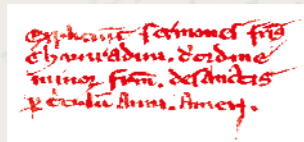 Expliciunt sermones fr̄is
Chunradini. d'ordine
minor. frūm. de sanctis
p circulū Anni. Amen.